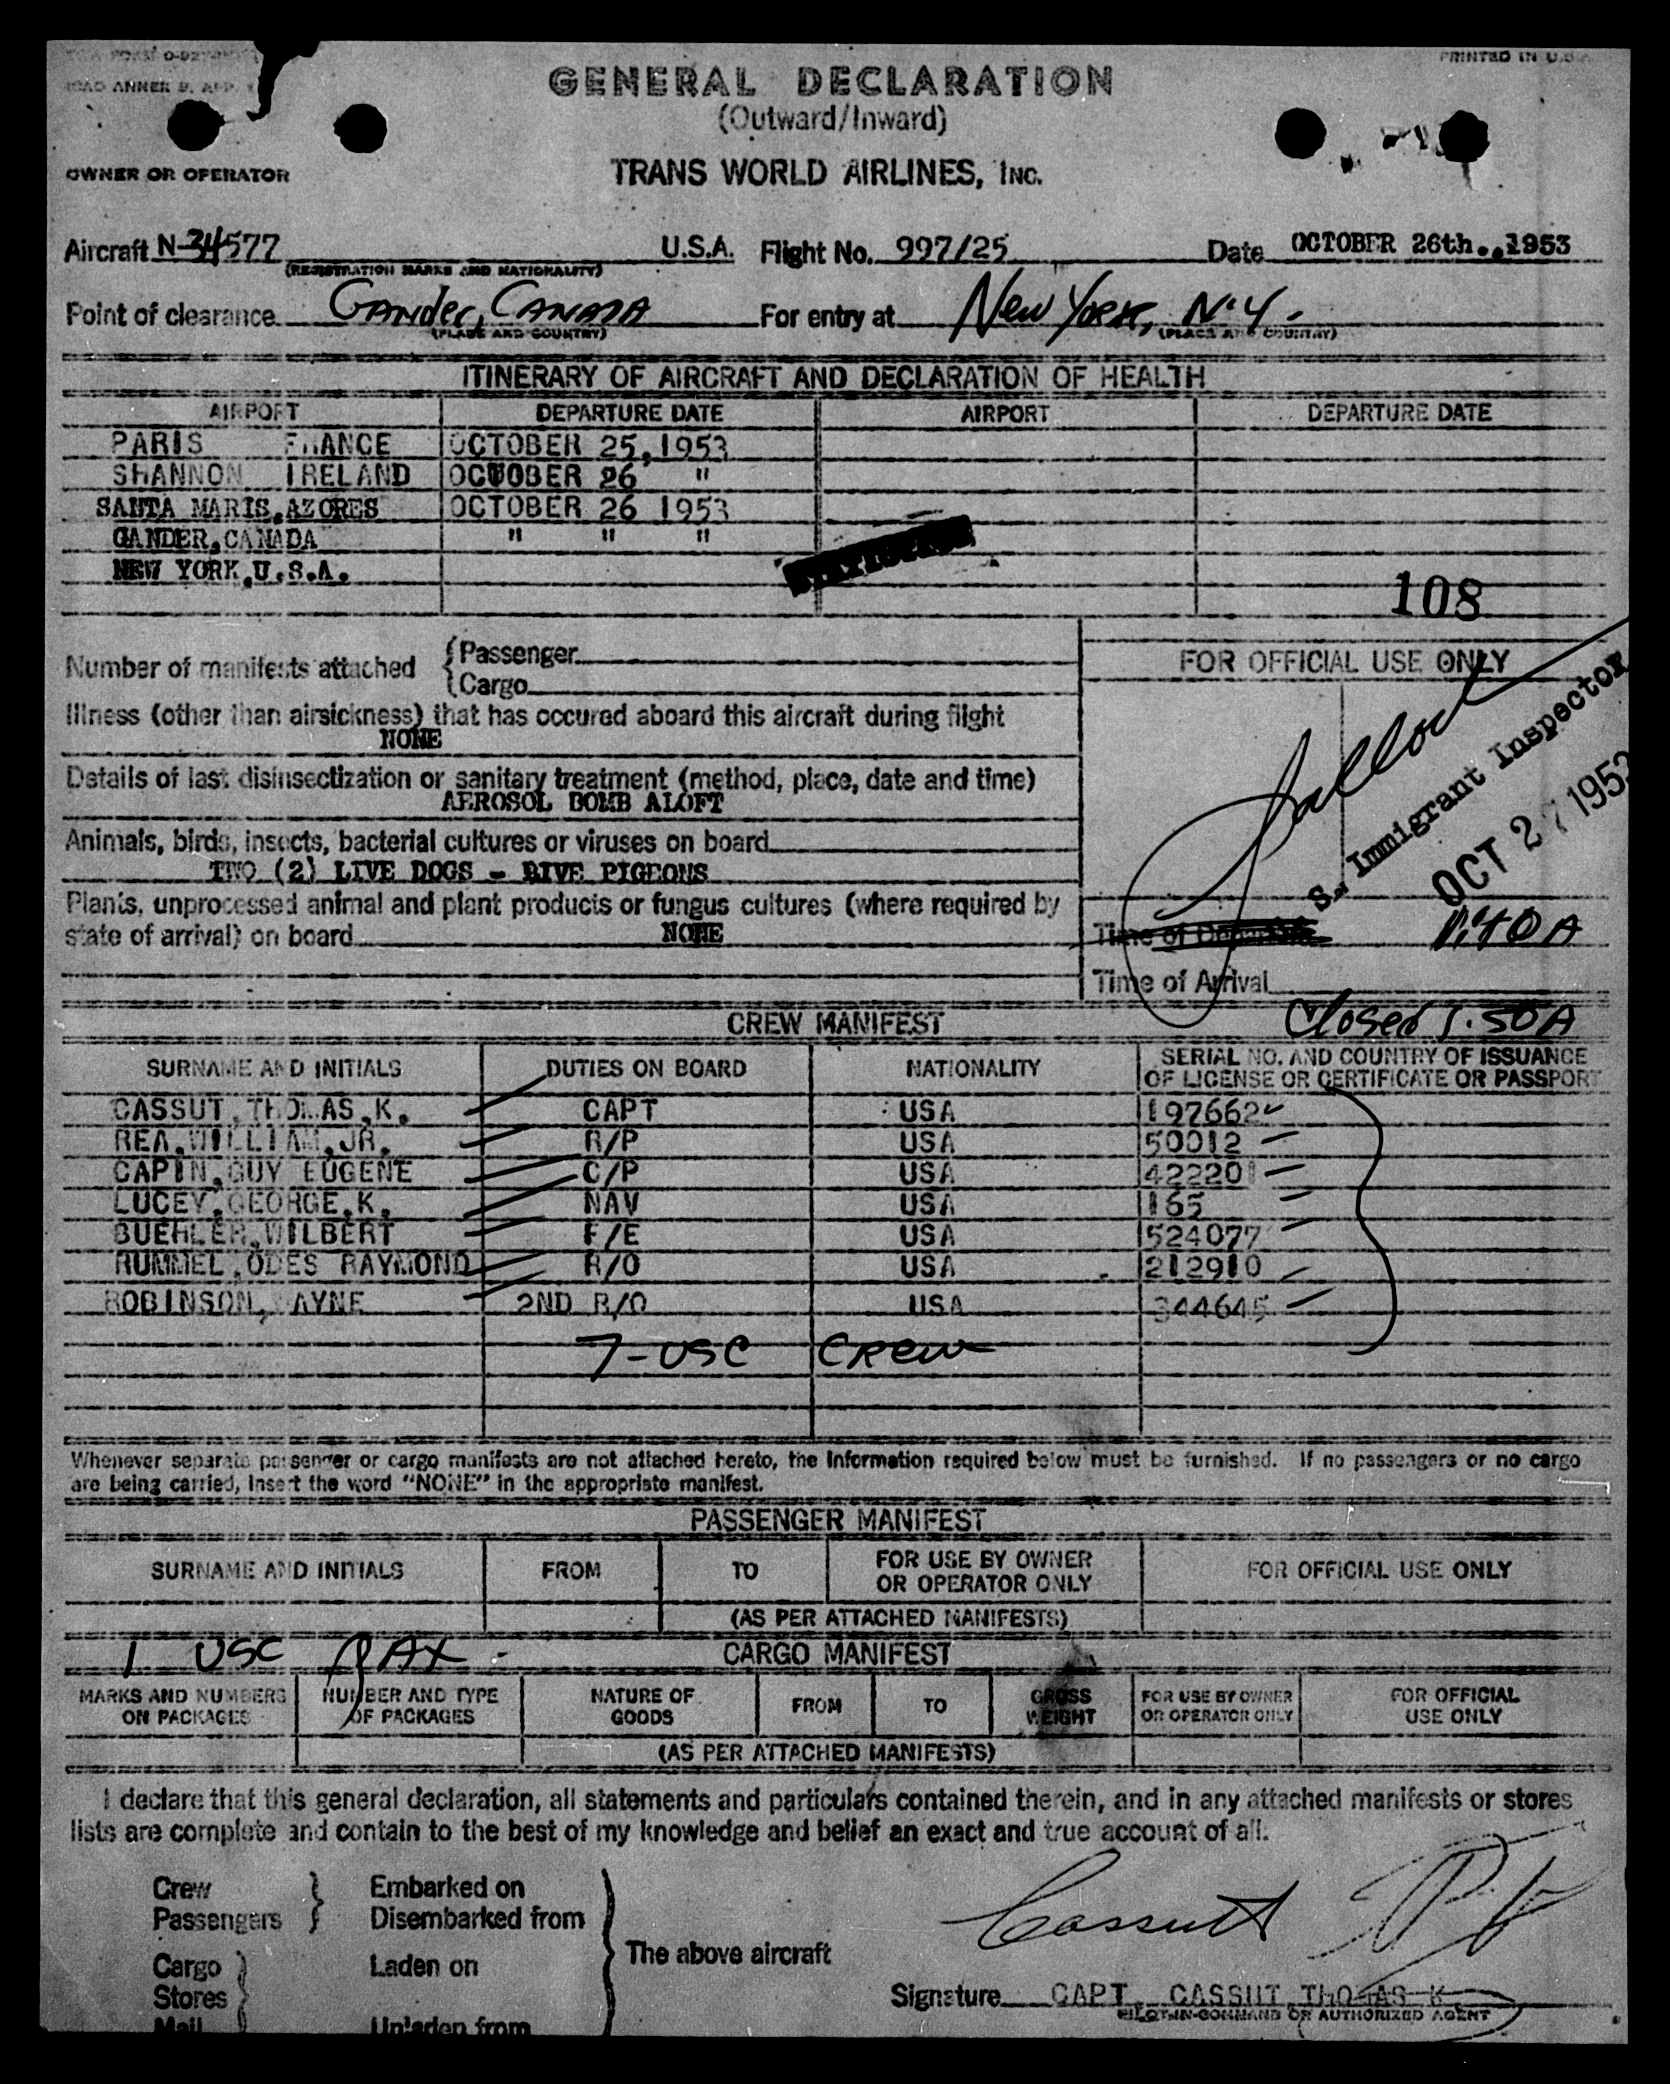 PRINTED IN U.S.A.
GENERAL DECLARATION
(Outward/Inward)
OWNER OR OPERATOR
TRANS WORLD AIRLINES, INC.
Aircraft N-34577 U.S.A. Flight No. 997/25 Date OCTOBER 26th.,1953
(REGISTRATION MARKS AND NATIONALITY)
Point of clearance Gander, Canada For entry at New York, N.Y.
(PLACE AND COUNTRY) (PLACE AND COUNTRY)
ITINERARY OF AIRCRAFT AND DECLARATION OF HEALTH
AIRPORT DEPARTURE DATE AIRPORT DEPARTURE DATE
PARIS FRANCE OCTOBER 25,1953
SHANNON IRELAND OCTOBER 26 "
SANTA MARIS,AZORES OCTOBER 26 1953
GANDER,CANADA " " "
NEW YORK,U.S.A.
108
Number of manifests attached {Passenger
{Cargo
FOR OFFICIAL USE ONLY
Illness (other than airsickness) that has occured aboard this aircraft during flight
NONE
Details of last disinsectization or sanitary treatment (method, place, date and time)
AEROSOL BOMB ALOFT
Animals, birds, insects, bacterial cultures or viruses on board
TWO (2) LIVE DOGS - BIVE PIGEONS
Plants, unprocessed animal and plant products or fungus cultures (where required by
state of arrival) on board NONE
S. Immigrant Inspector
OCT 27 1953
1.40 A
Time of Arrival
Closed 1.50A
CREW MANIFEST
SURNAME AND INITIALS DUTIES ON BOARD NATIONALITY SERIAL NO. AND COUNTRY OF ISSUANCE OF LICENSE OR CERTIFICATE OR PASSPORT
CASSUT,THOMAS,K. CAPT USA 197662
REA,WILLIAM,JR. R/P USA 50012
CAPIN,GUY EUGENE C/P USA 422201
LUCEY,GEORGE,K. NAV USA 165
BUEHLER,WILBERT F/E USA 524077
RUMMEL,ODES RAYMOND R/O USA 212910
ROBINSON, WAYNE 2ND R/O USA 344645
7-USC Crew
Whenever separate passenger or cargo manifests are not attached hereto, the information required below must be furnished. If no passengers or no cargo
are being carried, insert the word "NONE" in the appropriate manifest.
PASSENGER MANIFEST
SURNAME AND INITIALS FROM TO FOR USE BY OWNER OR OPERATOR ONLY FOR OFFICIAL USE ONLY
(AS PER ATTACHED MANIFESTS)
1 USC PAX -
CARGO MANIFEST
MARKS AND NUMBERS ON PACKAGES NUMBER AND TYPE OF PACKAGES NATURE OF GOODS FROM TO GROSS WEIGHT FOR USE BY OWNER OR OPERATOR ONLY FOR OFFICIAL USE ONLY
(AS PER ATTACHED MANIFESTS)
I declare that this general declaration, all statements and particulars contained therein, and in any attached manifests or stores
lists are complete and contain to the best of my knowledge and belief an exact and true account of all.
Crew Embarked on
Passengers Disembarked from
Cargo Laden on
Stores
Mail Unladen from
The above aircraft
Cassutt
Signature CAPT. CASSUT THOMAS K.
PILOT-IN-COMMAND OR AUTHORIZED AGENT